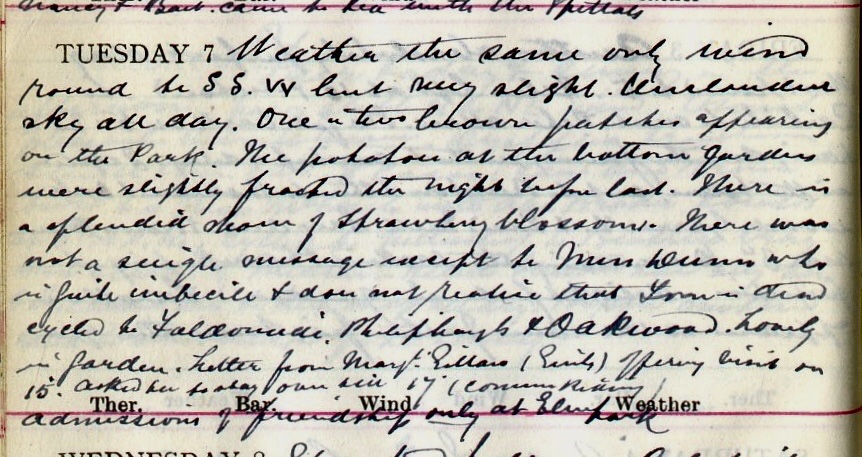 came to tea with the Pittars
TUESDAY 7 Weather the same only wind
round to S S. W but very slight. Unclouded
sky all day. One or two brown patches appearing
on the Park. The potatoes at the bottom garden
were slightly frosted the night before last. There is
a splendid show of Strawberry blossoms. There was
not a single message except to who
is quite imbecile & does not realise that is dead
cycled to & Oakwood. Lovely
in garden. Letter from Margt. (Emily) offering visit on
15. asked her to stay over till 17 (Communion)
Ther. Bar. Wind Weather
admissions of friendship only at Elm Park
WEDNESDAY 8